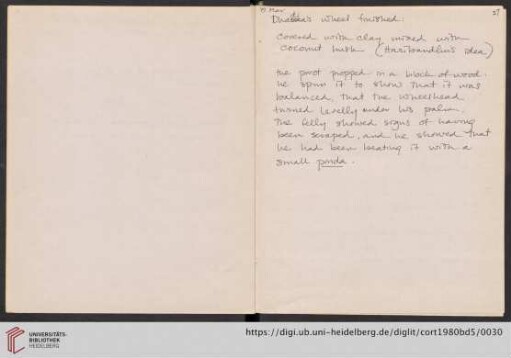 15 Mar
27
wheel finished.
covered with clay mixed with
coconut husk (Haribandhu's idea)
the pivot propped in a block of wood.
he spun it to show that it was
balanced, that the wheelhead
turned levelly under his palm.
The felly showed signs of having
been scraped, and he showed that
he had been beating it with a
small pinda.
UNIVERSITÄTS-
BIBLIOTHEK
HEIDELBERG
https://digi.ub.uni-heidelberg.de/diglit/cort1980bd5/0030